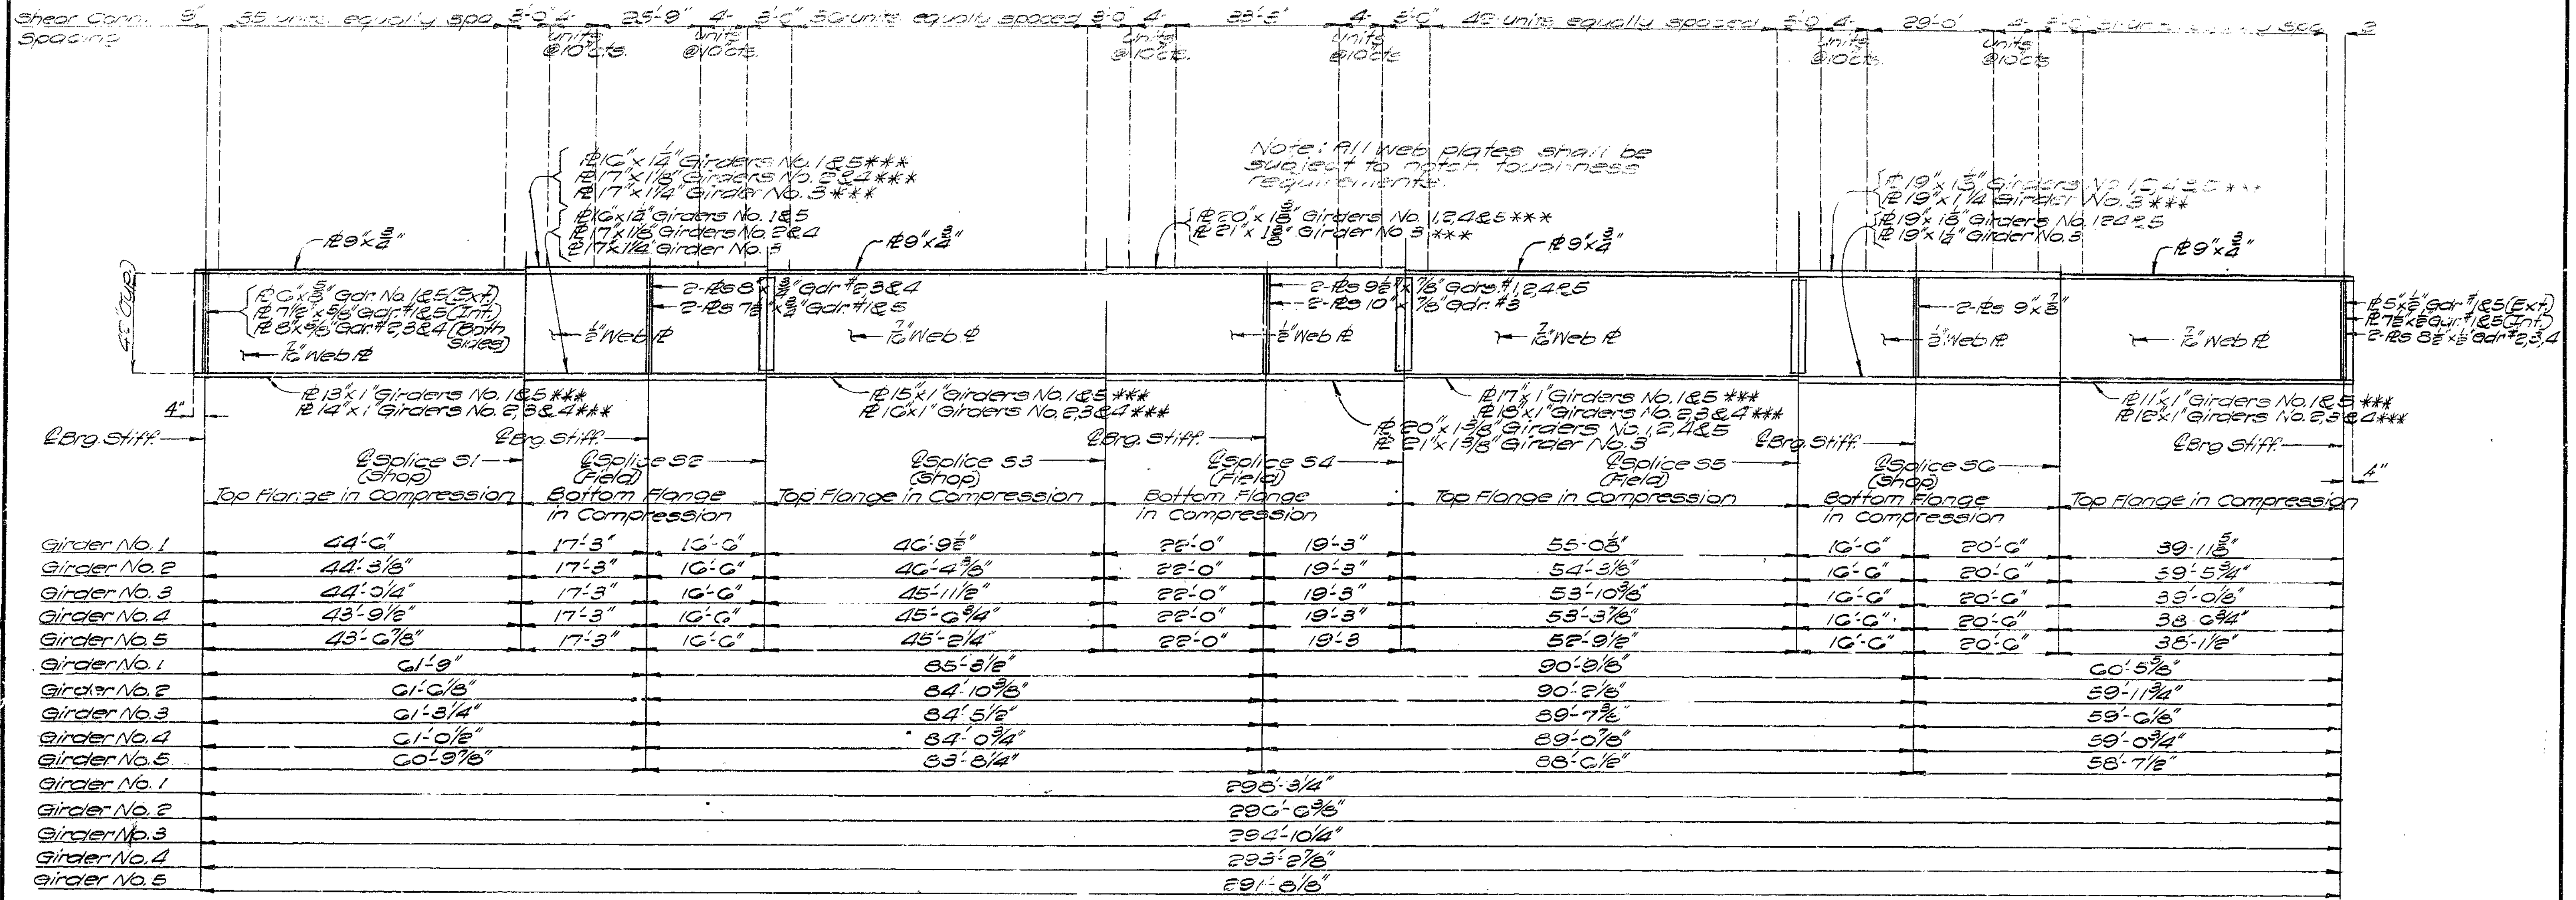 Shear Conn. Spacing
3" 35 units equally spa 3'-0" 4-units @10"cts. 25'-9" 4-units @10"cts. 3'-0" units equally spaced 3'-0" 4-units @10"cts. 4-units @10"cts 42 units equally spaced 4-units @10"cts. 29'-0" 4-units @10"cts 3
Note: All web plates shall be
subject to notch toughness
requirements.
℄16"x1¼" Girders No. 1&5***
℄17"x1⅛" Girders No. 2&4***
℄17"x1¼" Girder No. 3***
℄16"x1¼" Girders No. 1&5
℄17"x1⅛" Girders No. 2&4
℄17"x1¼" Girder No. 3
℄20"x1⅜" Girders No. 1,2,4&5***
℄21"x1⅜" Girder No. 3***
℄19"x1⅛" Girders No. 1,2,4&5***
℄19"x1¼" Girder No. 3***
℄19"x1⅛" Girders No. 1,2,4&5
℄19"x1¼" Girder No. 3
℄9"x¾"
℄9"x¾"
℄9"x¾"
℄9"x¾"
Gdr. No. 1&5 (Ext)
℄7½"x⅝" Gdr. #1&5 (Int)
℄8"x⅝" Gdr. #2,3&4 (Both Sides)
2-℄s 8"x¾" Gdr #2,3&4
2-℄s 7½"x¾" Gdr #1&5
2-℄s 9½"x⅞" Gdrs. #1,2,4&5
2-℄s 10"x⅞" Gdr. #3
2-℄s 9"x⅞"
℄5"x½" Gdr #1&5 (Ext)
℄7½"x½" Gdr. #1&5 (Int)
2-℄s 8½"x½" Gdr #2,3,4
7/16" Web ℄
½" Web ℄
7/16" Web ℄
½" Web ℄
7/16" Web ℄
½" Web ℄
7/16" Web ℄
℄13"x1" Girders No. 1&5***
℄14"x1" Girders No. 2,3&4***
℄15"x1" Girders No. 1&5***
℄16"x1" Girders No. 2,3&4***
℄17"x1" Girders No. 1&5***
℄18"x1" Girders No. 2,3&4***
℄20"x1⅜" Girders No. 1,2,4&5
℄21"x1⅜" Girder No. 3
℄11"x1" Girders No. 1&5***
℄12"x1" Girders No. 2,3&4***
4"
4"
℄ Brg. Stiff. ℄ Brg. Stiff. ℄ Brg. Stiff. ℄ Brg. Stiff. ℄ Brg. Stiff.
℄ Splice S1 (Shop) ℄ Splice S2 (Field) ℄ Splice S3 (Shop) ℄ Splice S4 (Field) ℄ Splice S5 (Field) ℄ Splice S6 (Shop)
Top Flange in Compression Bottom Flange in Compression Top Flange in Compression Bottom Flange in Compression Top Flange in Compression Bottom Flange in Compression Top Flange in Compression
Girder No. 1 44'-6" 17'-3" 16'-6" 46'-9½" 22'-0" 19'-3" 55'-0⅛" 16'-6" 20'-6" 39'-11⅝"
Girder No. 2 44'-3⅛" 17'-3" 16'-6" 46'-4⅜" 22'-0" 19'-3" 16'-6" 20'-6" 39'-5¾"
Girder No. 3 44'-0¼" 17'-3" 16'-6" 45'-11½" 22'-0" 19'-3" 53'-10⅜" 16'-6" 20'-6" 39'-0⅛"
Girder No. 4 43'-9½" 17'-3" 16'-6" 45'-6¾" 22'-0" 19'-3" 53'-3⅞" 16'-6" 20'-6" 38'-6¾"
Girder No. 5 43'-6⅞" 17'-3" 16'-6" 45'-2¼" 22'-0" 19'-3 52'-9½" 16'-6" 20'-6" 38'-1½"
Girder No. 1 61'-9" 85'-3½" 90'-9⅛" 60'-5⅝"
Girder No. 2 61'-6⅛" 84'-10⅜" 90'-2⅛" 59'-11¾"
Girder No. 3 61'-3¼" 84'-5½" 89'-7⅜" 59'-6⅛"
Girder No. 4 61'-0½" 84'-0¾" 89'-0⅞" 59'-0¾"
Girder No. 5 60'-9⅞" 83'-8¼" 88'-6½" 58'-7½"
Girder No. 1 298'-3¼"
Girder No. 2 296'-6⅜"
Girder No. 3 294'-10¼"
Girder No. 4 293'-2⅞"
Girder No. 5 291'-8⅛"